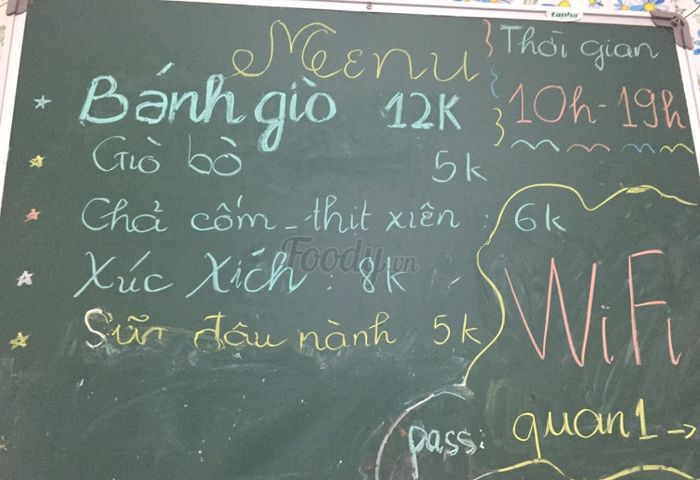 tanha
Menu
Thời gian
10h - 19h
Bánh giò 12K
Giò bò 5k
Chả cốm - thịt xiên : 6k
Xúc Xích : 8k
Sữa đâu nành 5k
Foody.vn
WiFi
pass: quan1 →